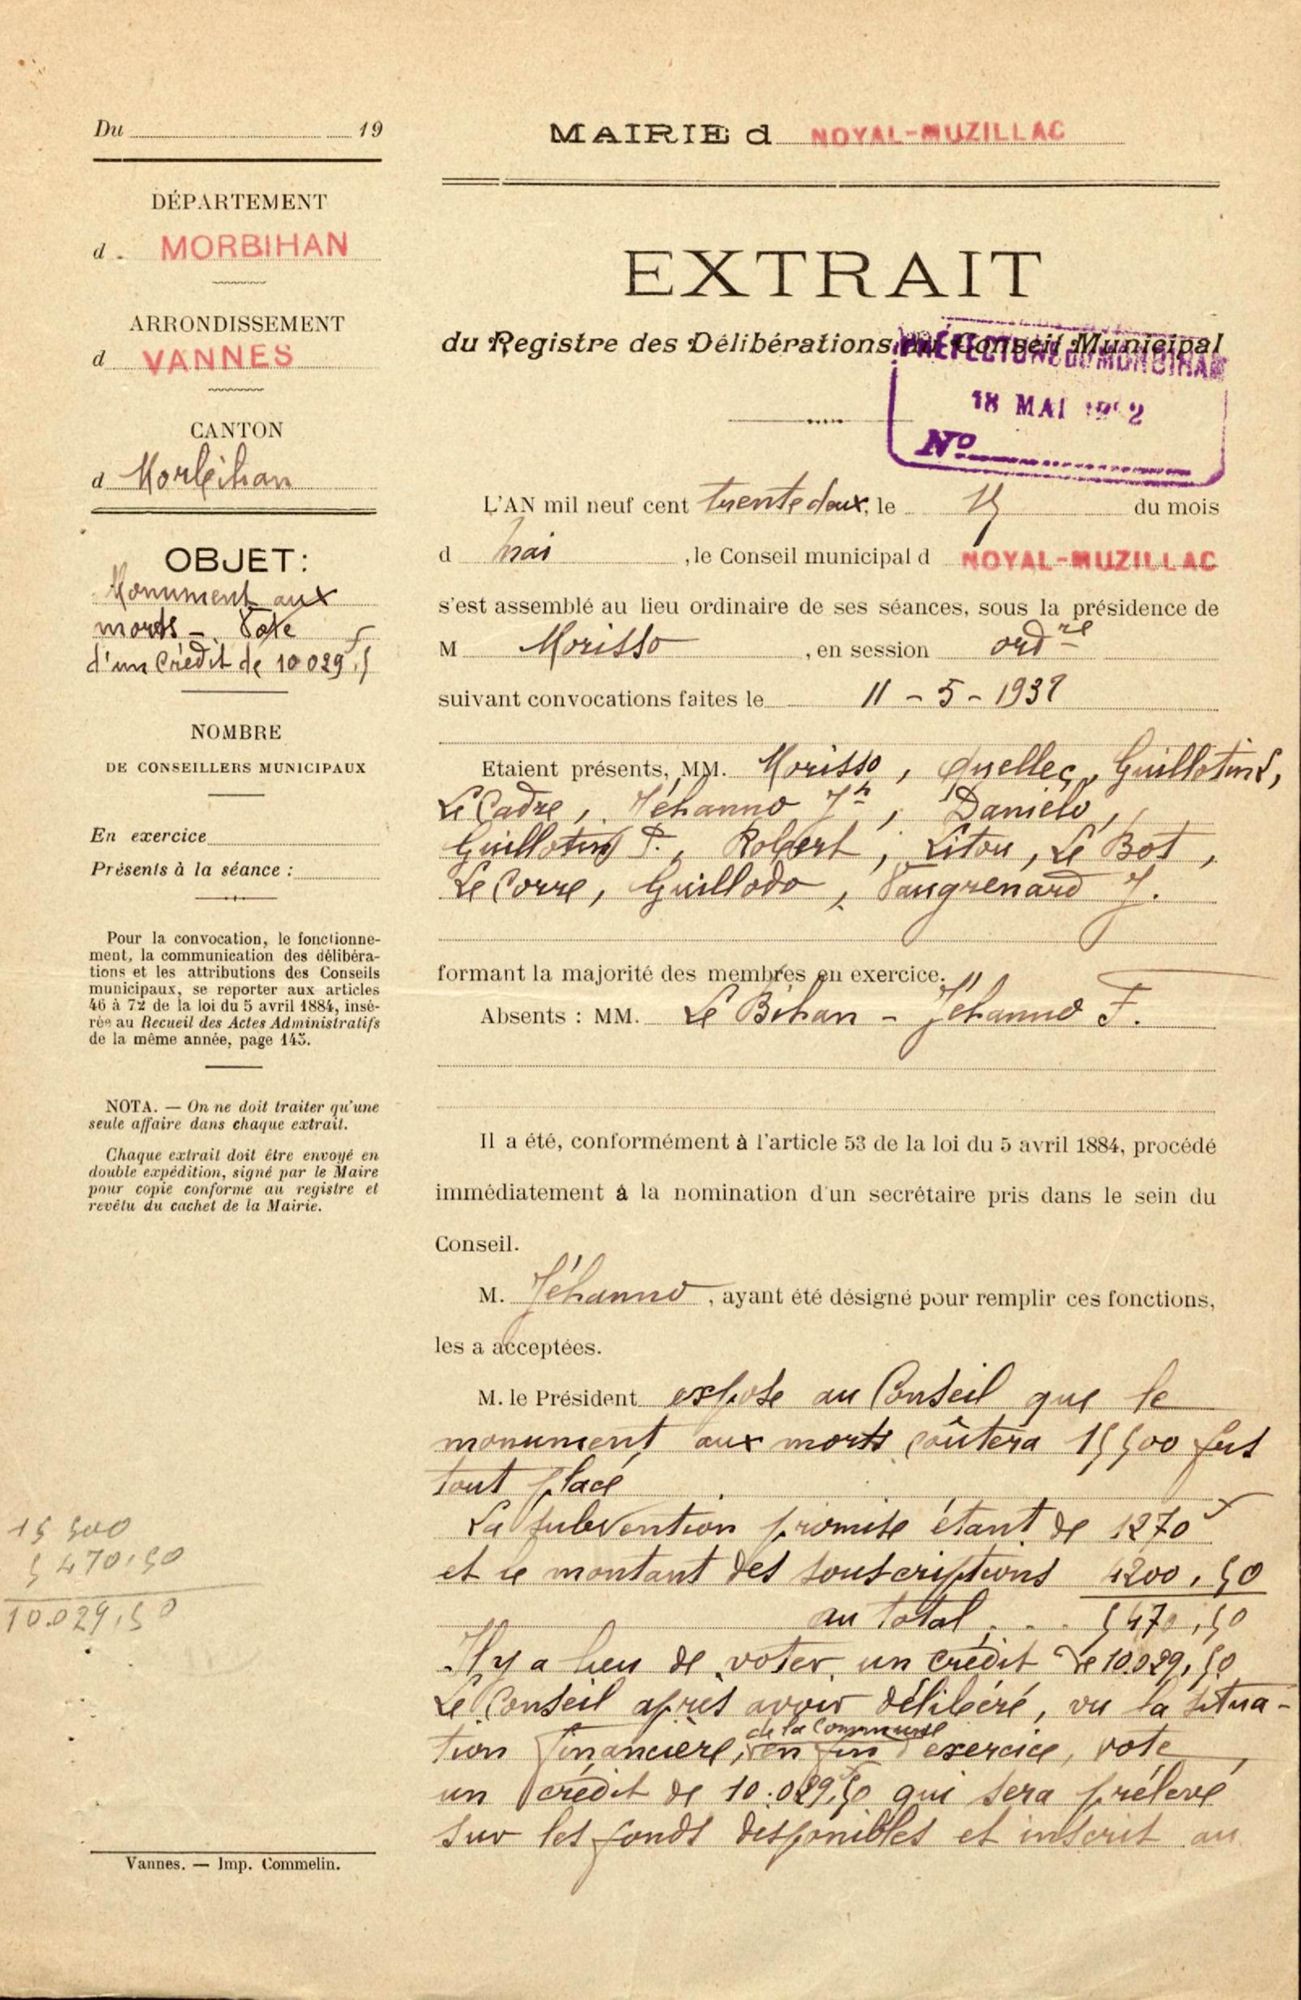 Du 19
DÉPARTEMENT
d. MORBIHAN
ARRONDISSEMENT
d VANNES
CANTON
d Morbihan
OBJET:
Monument aux
morts - Vote
d'un Crédit de 10 029f,5
NOMBRE
DE CONSEILLERS MUNICIPAUX
En exercice
Présents à la séance :
Pour la convocation, le fonctionne-
ment, la communication des délibéra-
tions et les attributions des Conseils
municipaux, se reporter aux articles
46 à 72 de la loi du 5 avril 1884, insé-
rés au Recueil des Actes Administratifs
de la même année, page 145.
NOTA. — On ne doit traiter qu'une
seule affaire dans chaque extrait.
Chaque extrait doit être envoyé en
double expédition, signé par le Maire
pour copie conforme au registre et
revêtu du cachet de la Mairie.
15 500
5 470,50
10.029,50
Vannes. — Imp. Commelin.
MAIRIE d NOYAL-MUZILLAC
EXTRAIT
du Registre des Délibérations du Conseil Municipal
PRÉFECTURE DU MORBIHAN
18 MAI 1932
No
L'AN mil neuf cent trente deux, le 15 du mois
d mai , le Conseil municipal d NOYAL-MUZILLAC
s'est assemblé au lieu ordinaire de ses séances, sous la présidence de
M Morisso , en session ordre
suivant convocations faites le 11 - 5 - 1932
Etaient présents, MM. Morisso, Quellec, Guillotin L,
Le Cadre, Jéhanno Jh, Daniélo,
Guillotin P., Robert, Litou, Le Bot,
Le Corre, Guillodo, Vaugrenard J.
formant la majorité des membres en exercice.
Absents : MM. Le Bihan - Jéhanno F.
Il a été, conformément à l'article 53 de la loi du 5 avril 1884, procédé
immédiatement à la nomination d'un secrétaire pris dans le sein du
Conseil.
M. Jéhanno , ayant été désigné pour remplir ces fonctions,
les a acceptées.
M. le Président expose au Conseil que le
monument aux morts coûtera 15 500 frs
tout placé
La subvention promise étant de 1270f
et le montant des souscriptions 4200,50
au total . . . 5470,50
Il y a lieu de voter un crédit de 10.029,50
Le Conseil après avoir délibéré, vu la situa-
de la Commune
tion financière, en fin d'exercice, vote
un crédit de 10.029f,50 qui sera prélevé
sur les fonds disponibles et inscrit au